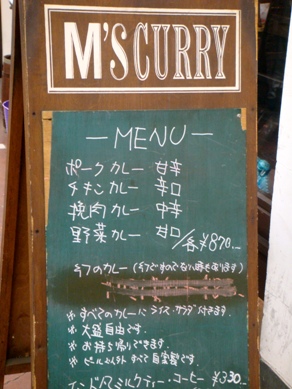 M'S CURRY
—MENU—
ポークカレー 甘辛
チキンカレー 辛口
挽肉カレー 中辛
野菜カレー 甘口
/各¥870-
のカレー
※ すべてのカレーに ライス・サラダ付きます
※ 大盛自由です.
※ お持ち帰りできます.
※ ビール以外 すべて自家製です
ミルクティー・コーヒー ¥330-